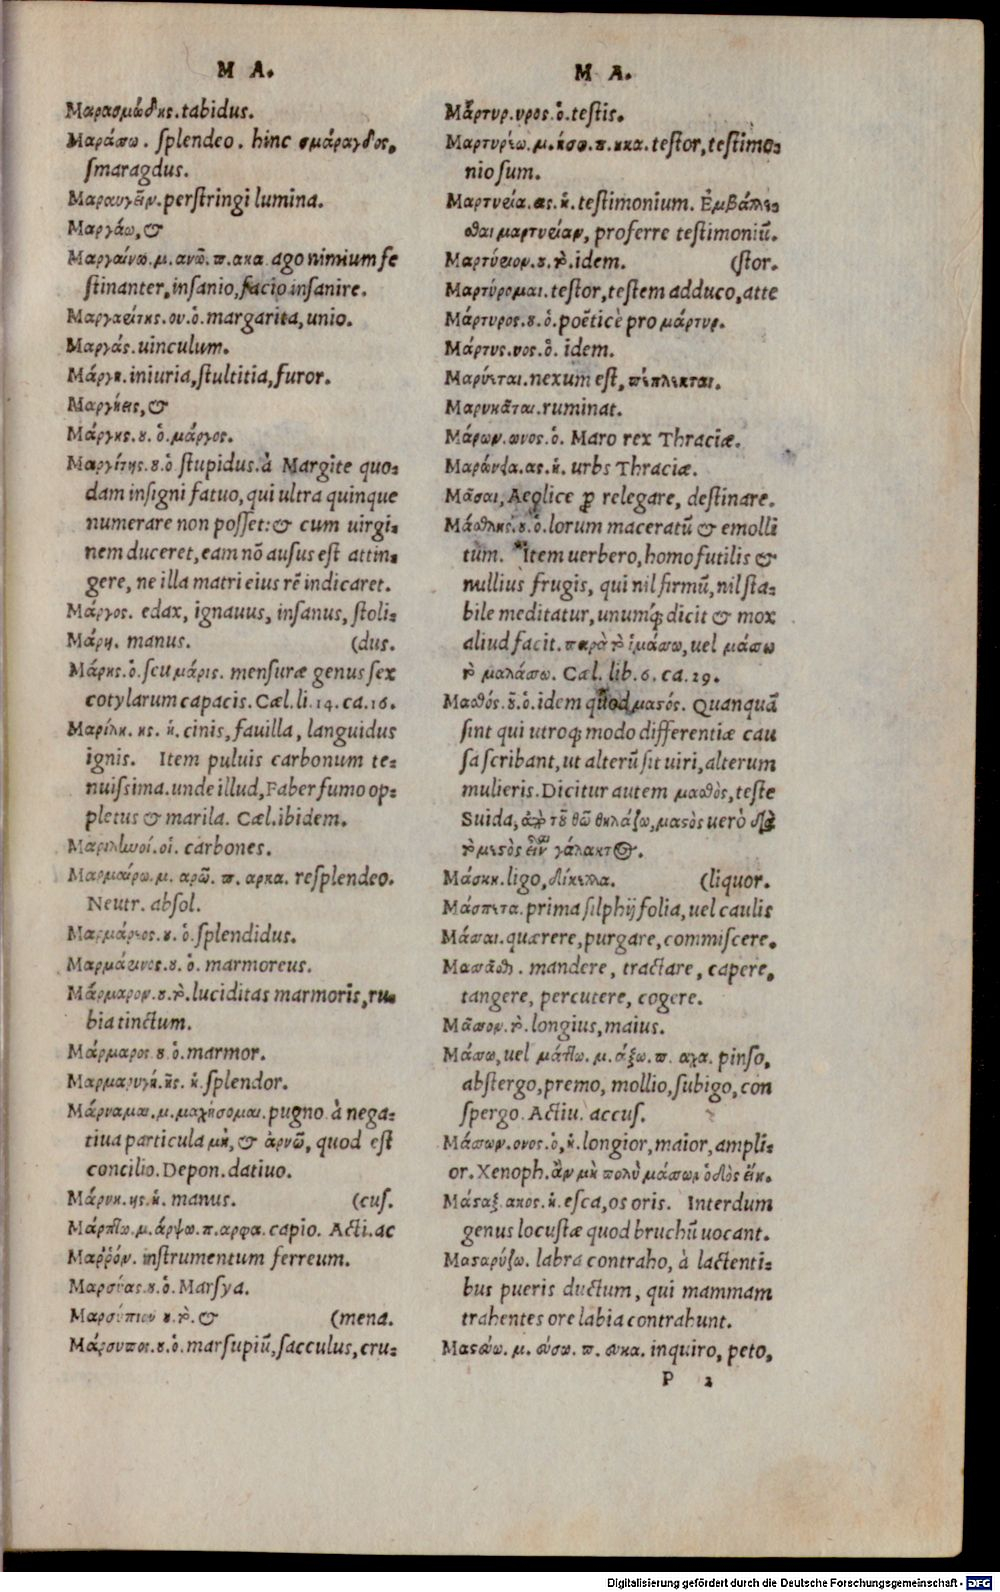 M A.
Μαρασμώδης. tabidus.
Μαράσσω. splendeo. hinc σμάραγδος,
smaragdus.
Μαραυγεῖν. perstringi lumina.
Μαργάω, &
Μαργαίνω. μ. ανῶ. π. αγκα ago nimium fe
stinanter, insanio, facio insanire.
Μαργαρίτης. ου. ὁ. margarita, unio.
Μαργάς. uinculum.
Μάργη. iniuria, stultitia, furor.
Μαργήεις, &
Μάργης. ȣ. ὁ. μάργος.
Μαργίτης. ȣ. ὁ stupidus. à Margite quo-
dam insigni fatuo, qui ultra quinque
numerare non posset: & cum uirgi-
nem duceret, eam nō ausus est attin-
gere, ne illa matri eius rē indicaret.
Μάργος. edax, ignauus, insanus, stoli-
Μάρη. manus. (dus.
Μάρης. ὁ. seu μάρις. mensuræ genus sex
cotylarum capacis. Cæl. li. 14. ca. 16.
Μαρίλη. ης. ἡ. cinis, fauilla, languidus
ignis. Item puluis carbonum te-
nuissima. unde illud, Faber fumo op-
pletus & marila. Cæl. ibidem.
οἱ. carbones.
Μαρμαίρω. μ. αρῶ. π. αρκα. resplendeo.
Neutr. absol.
Μαρμάρεος. ȣ. ὁ. splendidus.
Μαρμάρινος. ȣ. ὁ. marmoreus.
Μάρμαρον. ȣ. τὸ. luciditas marmoris, ru-
bia tinctum.
Μάρμαρος ȣ. ὁ. marmor.
Μαρμαρυγή. ῆς. ἡ. splendor.
Μάρναμαι. μ. μαχήσομαι. pugno à nega-
tiua particula μὴ, & ἀρνῶ, quod est
concilio. Depon. datiuo.
Μάρνη. ης. ἡ. manus. (cus.
Μάρπτω. μ. άρψω. π. αρφα. capio. Acti. ac
Μαῤῥόν. instrumentum ferreum.
Μαρσύας. ȣ. ὁ. Marsya.
Μαρσύπιον ȣ. τὸ. & (mena.
Μάρσυπος. ȣ. ὁ. marsupiū, sacculus, cru-
M A.
Μάρτυρ. υρος. ὁ. testis.
Μαρτυρέω. μ. ήσω. π. ηκα. testor, testimo-
nio sum.
Μαρτυρία. ας. ἡ. testimonium. Ἐμβάλλε-
σθαι μαρτυρίαν, proferre testimoniū.
Μαρτύριον. ȣ. τὸ. idem. (stor.
Μαρτύρομαι. testor, testem adduco, atte
Μάρτυρος. ȣ. ὁ. poëticè pro μάρτυρ.
Μάρτυς. υος. ὁ. idem.
Μαρύεται. nexum est, πέπλεκται.
Μαρυκᾶται. ruminat.
Μάρων. ωνος. ὁ. Maro rex Thraciæ.
Μαρώνεια. ας. ἡ. urbs Thraciæ.
Μᾶσαι, Aeolice ꝓ relegare, destinare.
Μάσθλης. ȣ. ὁ. lorum maceratū & emolli
tum. Item uerbero, homo futilis &
nullius frugis, qui nil firmū, nil sta-
bile meditatur, unumq́; dicit & mox
aliud facit. παρὰ τὸ ἱμάσσω, uel μάσσω
τὸ μαλάσσω. Cæl. lib. 6. ca. 29.
Μασθός. ȣ͂. ὁ. idem quod μαστός. Quanquā
sint qui utroq; modo differentiæ cau
sa scribant, ut alterū sit uiri, alterum
mulieris. Dicitur autem μασθὸς, teste
Suida, ἀπὸ τȣ͂ θῶ θηλάζω, μαστὸς uerò διὰ
τὸ μεστὸς εἶναι γάλακτος.
Μάσκη. ligo, δίκελλα. (liquor.
Μάσπετα. prima silphij folia, uel caulis
Μάσσαι. quærere, purgare, commiscere.
Μασσᾶσθαι. mandere, tractare, capere,
tangere, percutere, cogere.
Μᾶσσον. τὸ. longius, maius.
Μάσσω, uel μάττω. μ. άξω. π. αχα. pinso,
abstergo, premo, mollio, subigo, con
spergo. Actiu. accus.
Μάσσων. ονος. ὁ, ἡ. longior, maior, ampli-
or. Xenoph. ἂν μὴ πολὺ μάσσων ὁδὸς εἴη.
Μάσταξ. ακος. ἡ. esca, os oris. Interdum
genus locustæ quod bruchū uocant.
Μασταρύζω. labra contraho, à lactenti-
bus pueris ductum, qui mammam
trahentes ore labia contrahunt.
Μαστεύω. μ. εύσω. π. ευκα. inquiro, peto,
P 2
Digitalisierung gefördert durch die Deutsche Forschungsgemeinschaft - DFG